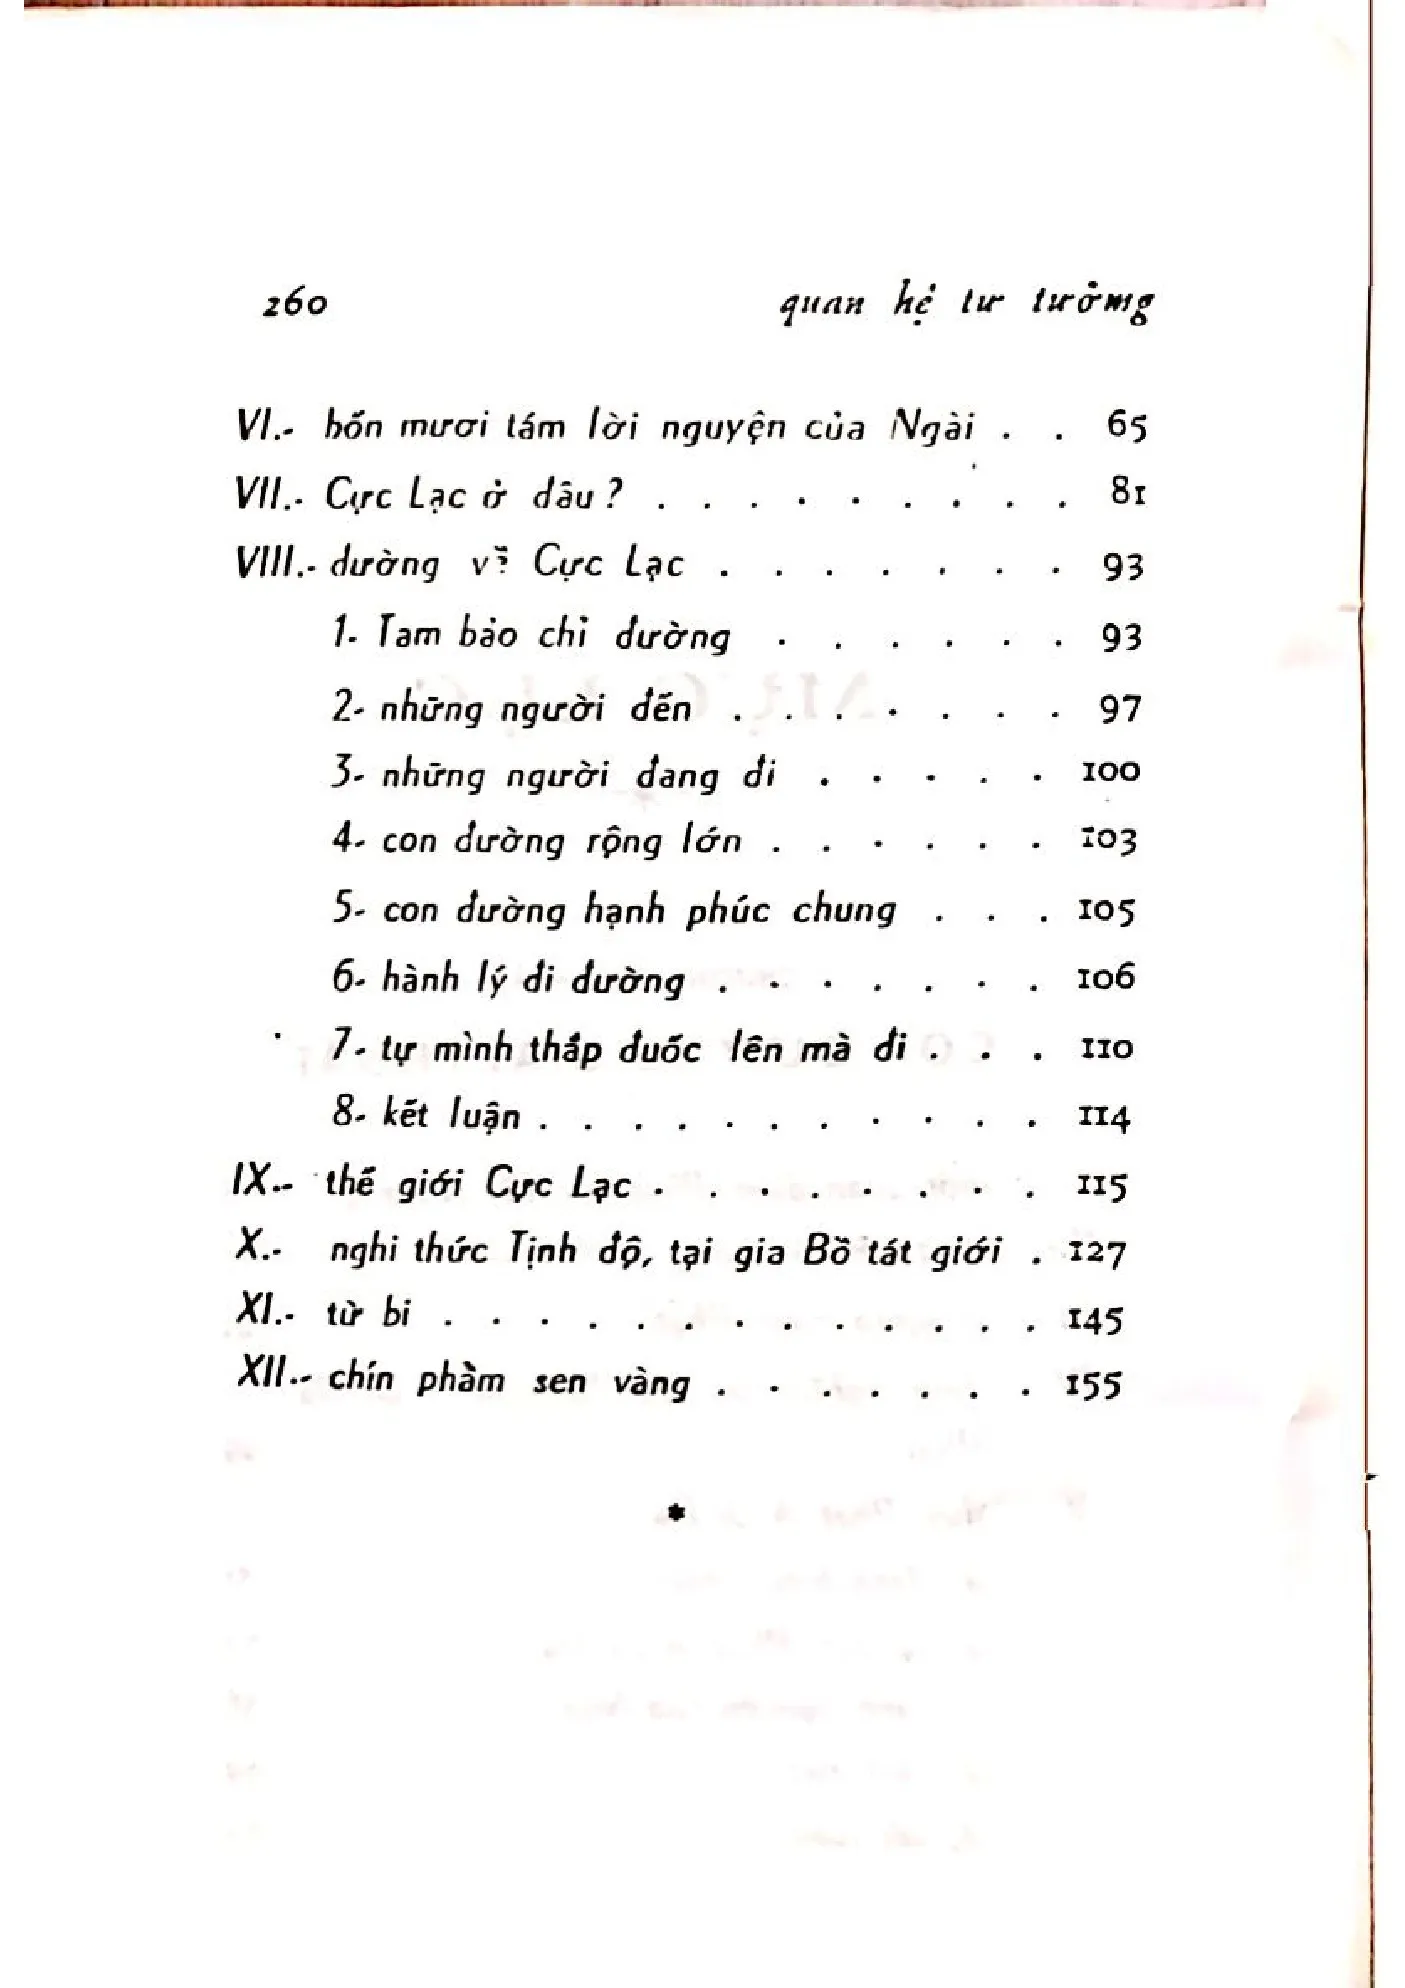 260 quan hệ tư tưởng
VI.- bốn mươi tám lời nguyện của Ngài . . 65
VII.- Cực Lạc ở đâu ? . . . . . . . . . 81
VIII.- đường về Cực Lạc . . . . . . . 93
1- Tam bảo chỉ đường . . . . . . 93
2- những người đến . . . . . . . 97
3- những người đang đi . . . . . 100
4- con đường rộng lớn . . . . . . 103
5- con đường hạnh phúc chung . . . 105
6- hành lý đi đường . . . . . . . 106
7- tự mình thắp đuốc lên mà đi . . . 110
8- kết luận . . . . . . . . . . . 114
IX.- thế giới Cực Lạc . . . . . . . . 115
X.- nghi thức Tịnh độ, tại gia Bồ tát giới . 127
XI.- từ bi . . . . . . . . . . . . . 145
XII.- chín phẩm sen vàng . . . . . . . 155
*